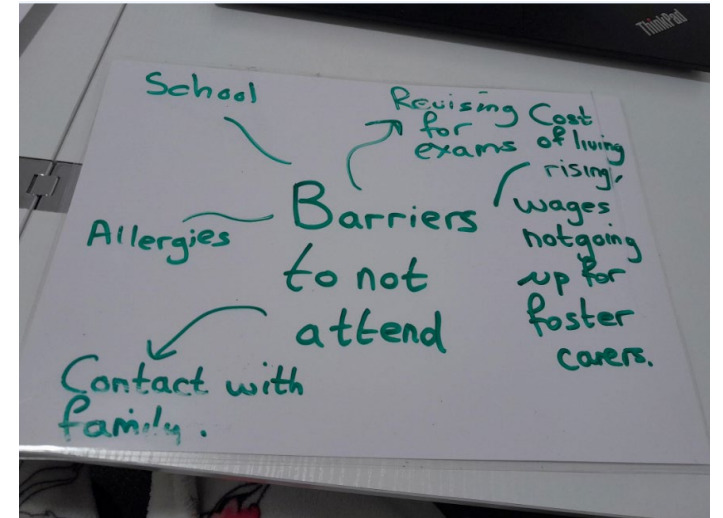 ThinkPad
School
Revising
for
exams
Cost
of living
rising,
wages
not going
up for
foster
carers.
Barriers
to not
attend
Allergies
Contact with
family.